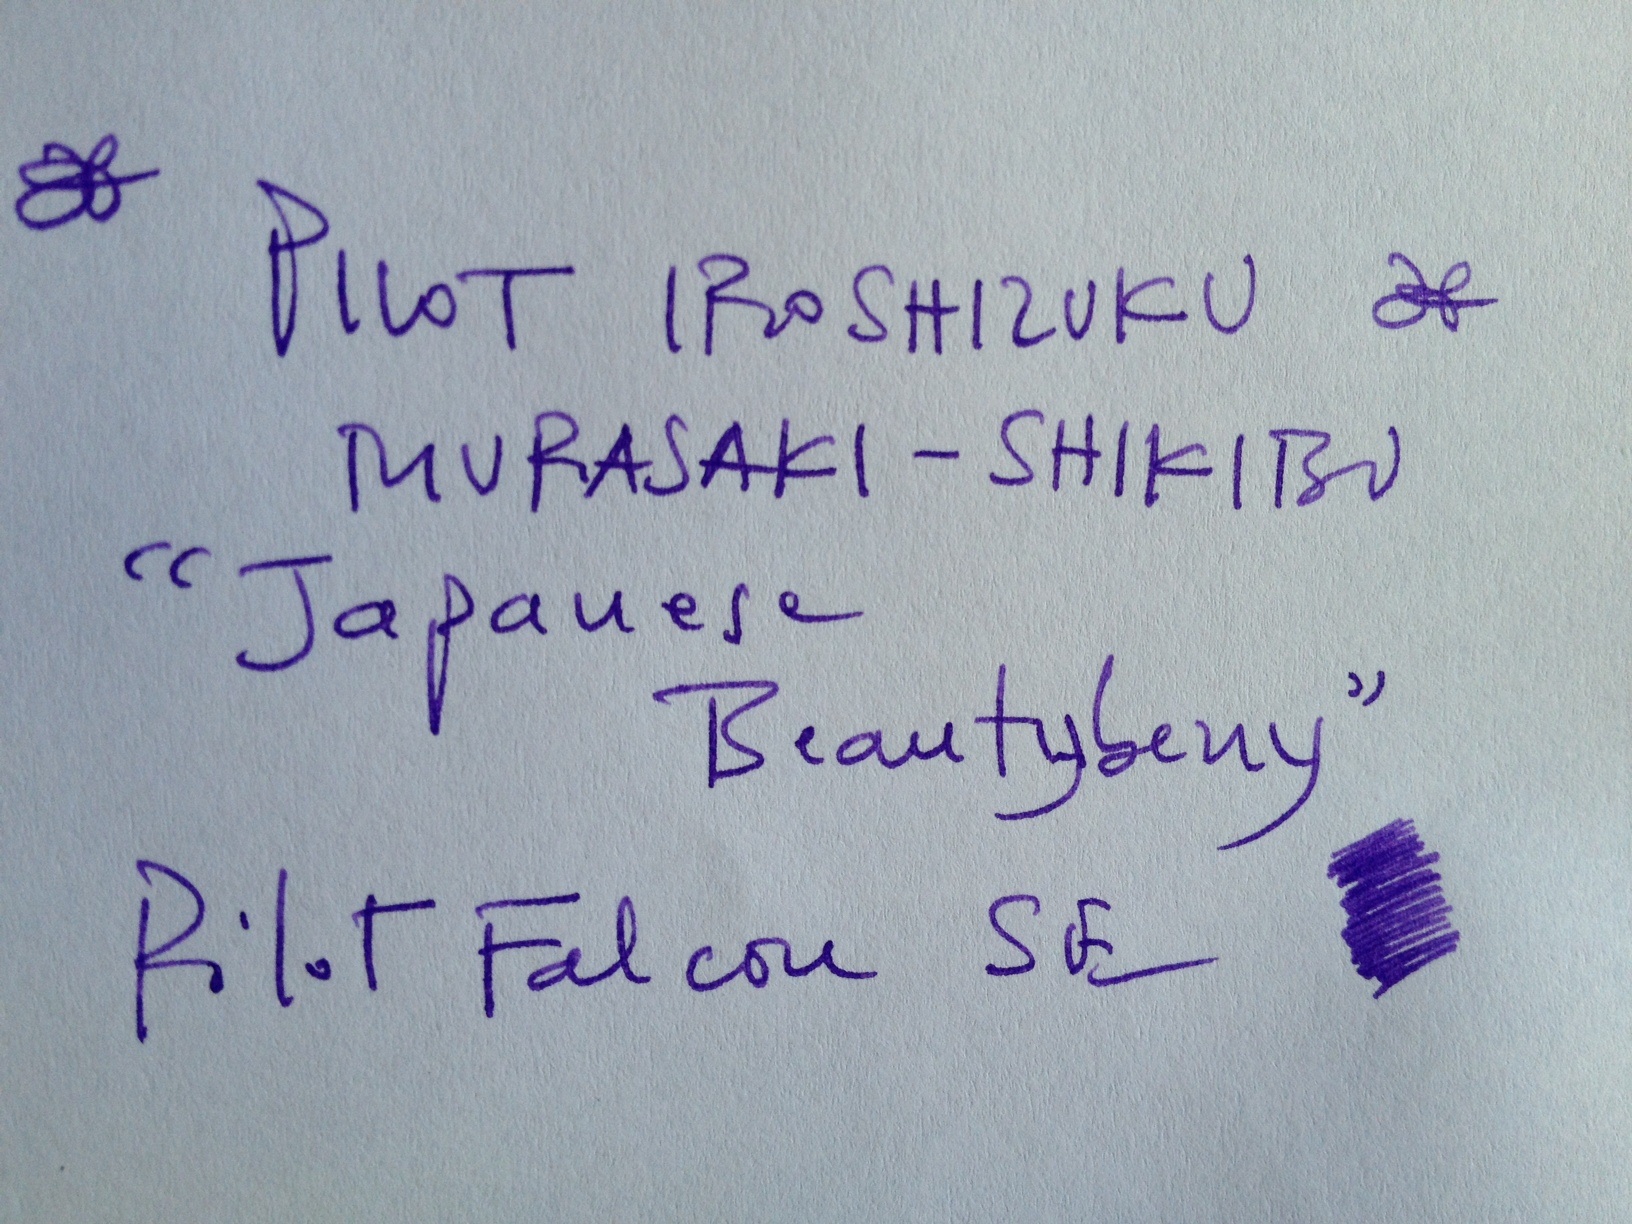 PILOT IROSHIZUKU
MURASAKI-SHIKIBU
“Japanese
Beautyberry”
Pilot Falcon SE